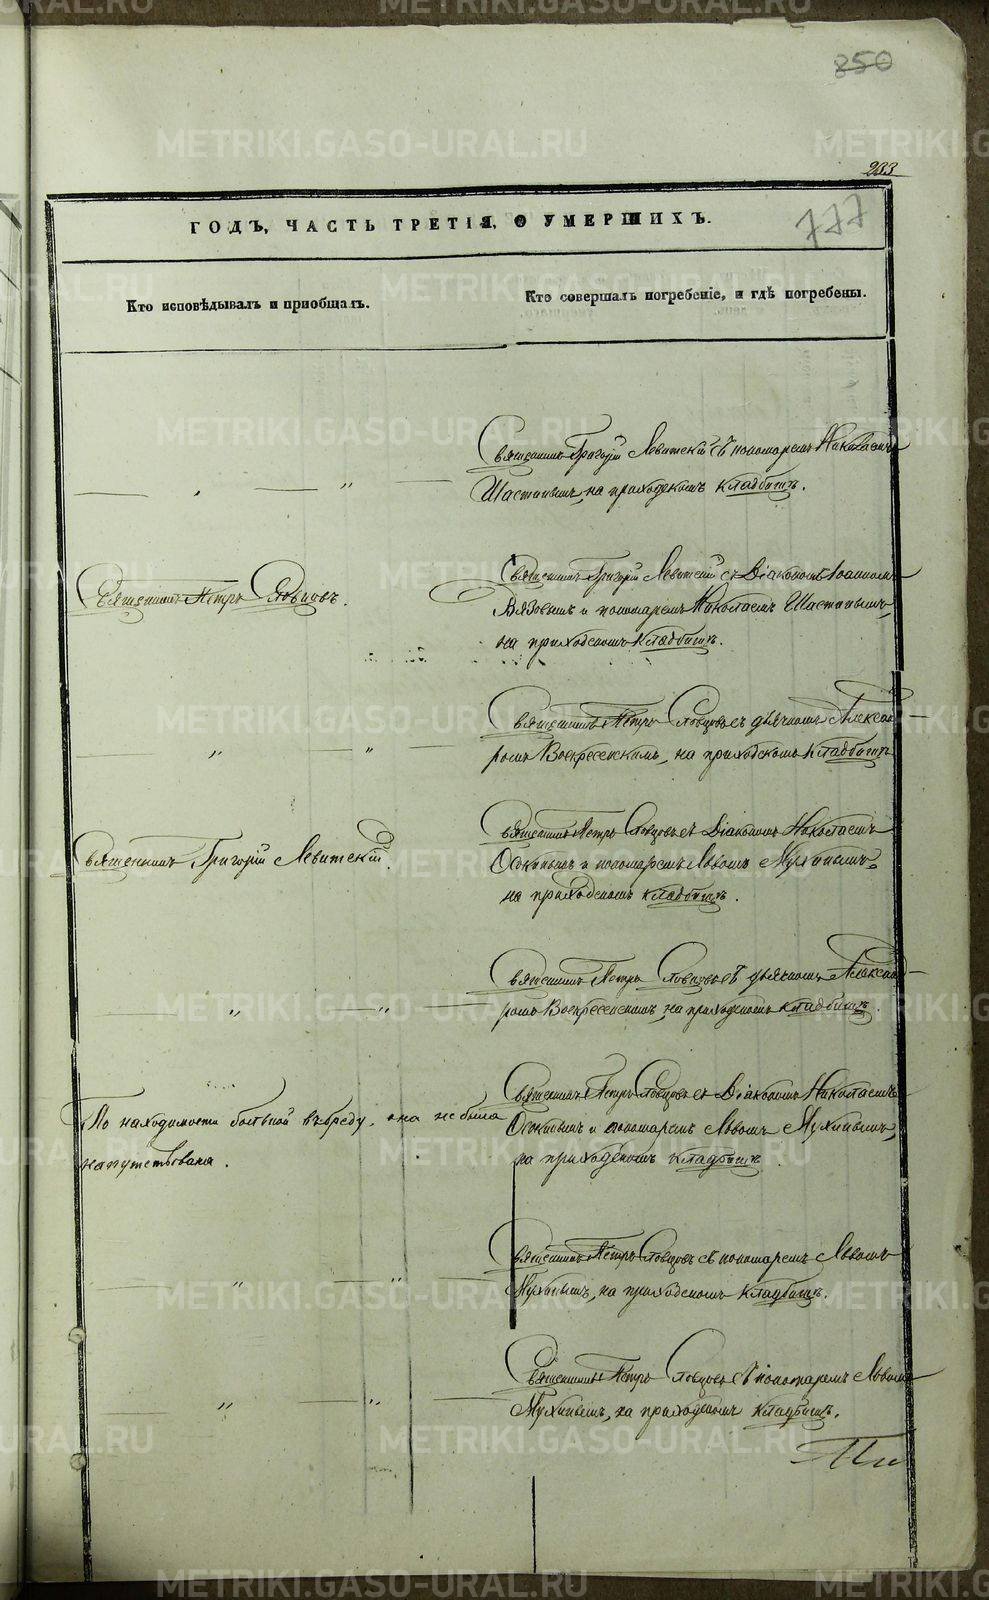 850
233
777
ГОДЪ, ЧАСТЬ ТРЕТІЯ, О УМЕРШИХЪ.
Кто исповѣдывалъ и пріобщалъ.
Кто совершалъ погребеніе, и гдѣ погребены.
Священникъ Григорій Левитскій съ пономаремъ Николаемъ
Шастинымъ, на приходскомъ кладбищѣ.
Священникъ Петръ Словцовъ.
Священникъ Григорій Левитскій съ Діакономъ Іоанномъ
Вязовымъ и пономаремъ Николаемъ Шастинымъ,
на приходскомъ кладбищѣ.
Священникъ Петръ Словцовъ съ дьячкомъ Алексан-
ромъ Воскресенскимъ, на приходскомъ кладбищѣ
Священникъ Григорій Левитскій.
Священникъ Петръ Словцовъ съ Діакономъ Николаемъ
и пономаремъ Львомъ Мухинымъ,
на приходскомъ кладбищѣ.
Священникъ Петръ Словцовъ съ дьячкомъ Алексан-
ромъ Воскресенскимъ, на приходскомъ кладбищѣ.
По находимости больной въ бреду, она не была
напутствована.
Священникъ Петръ Словцовъ съ Діакономъ Николаемъ
и пономаремъ Львомъ Мухинымъ,
на приходскомъ кладбищѣ.
Священникъ Петръ Словцовъ съ пономаремъ Львомъ
Мухинымъ, на приходскомъ кладбищѣ.
Священникъ Петръ Словцовъ съ пономаремъ Львомъ
Мухинымъ, на приходскомъ кладбищѣ.
METRIKI.GASO-URAL.RU